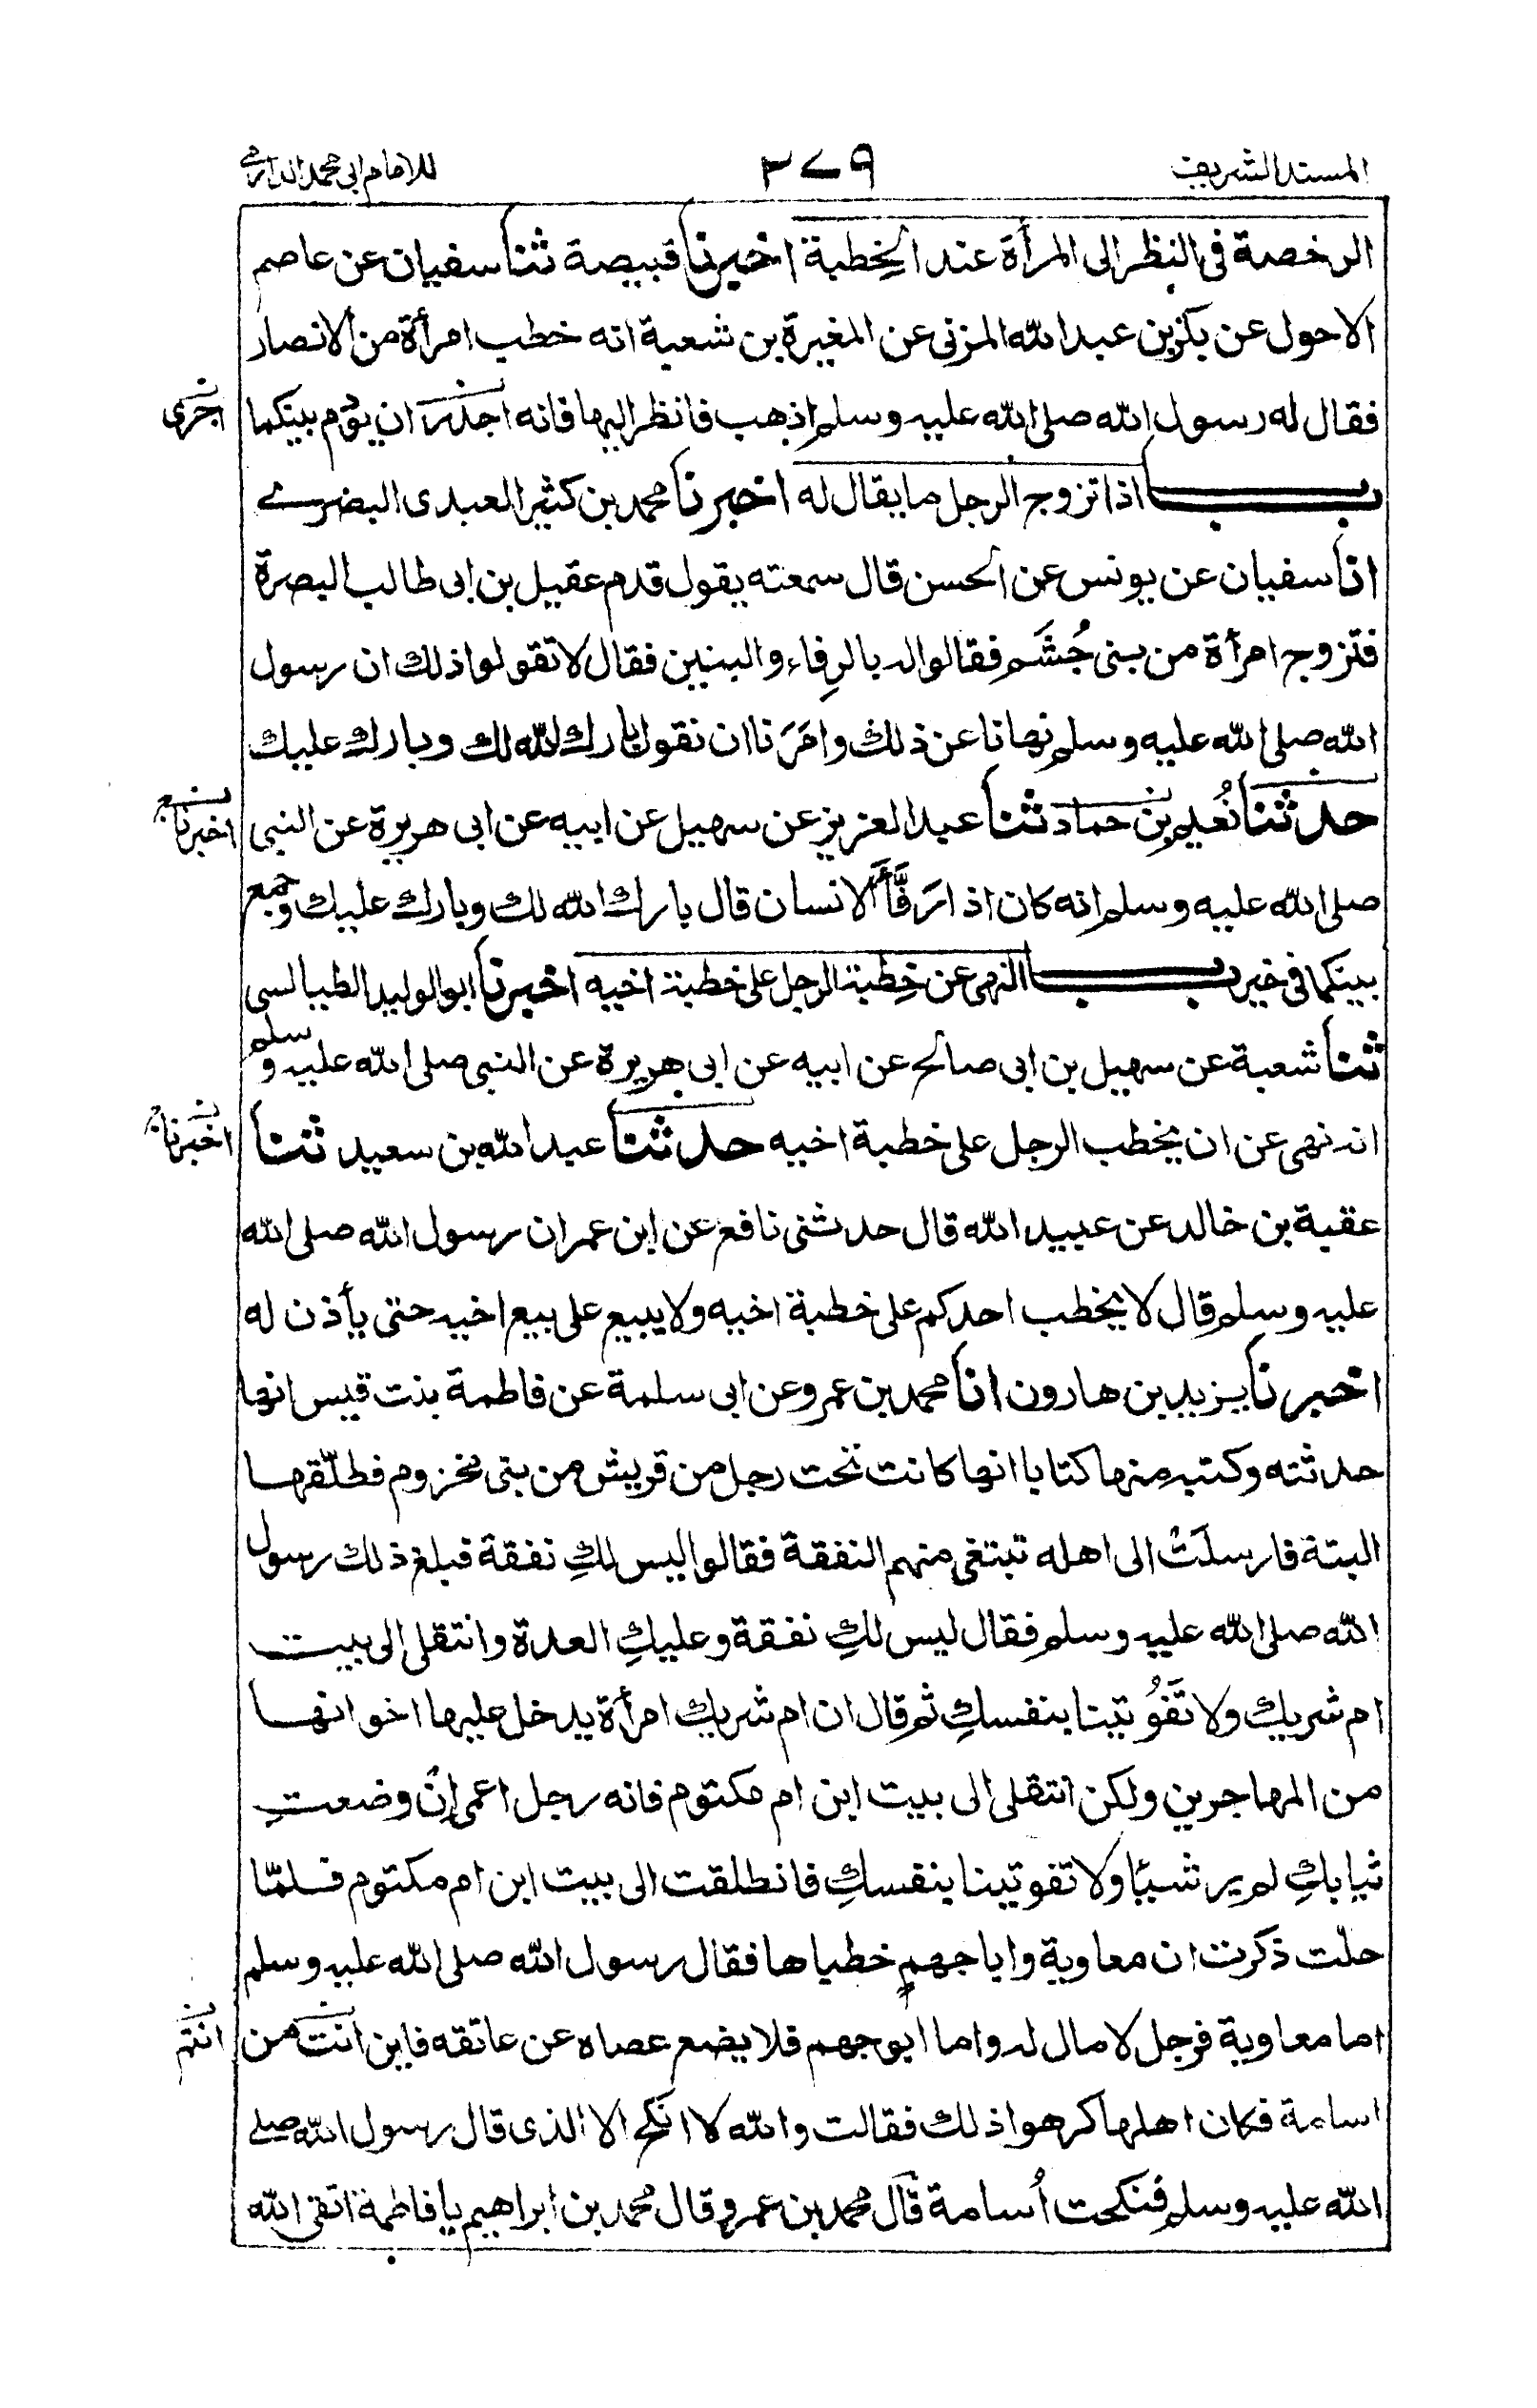 المسند الشريف
٢٧٩
للامام ابى محمد الدارمى
الرخصة فى النظر الى المرأة عند الخِطبة اخبرنا قبيصة ثنا سفيان عن عاصم
الاحول عن بكر بن عبد الله المزنى عن المغيرة بن شعبة انه خطب امرأة من الانصار
فقال له رسول الله صلى الله عليه وسلم اذهب فانظر اليها فانه اجدر ان يؤدم بينكما
احرى
باب اذا تزوج الرجل ما يقال له اخبرنا محمد بن كثير العبدى البصرى
انا سفيان عن يونس عن الحسن قال سمعته يقول قدم عقيل بن ابى طالب البصرة
فتزوج امرأة من بنى جُشَم فقالوا له بالرِفاء والبنين فقال لا تقولوا ذلك ان رسول
الله صلى الله عليه وسلم نهانا عن ذلك وامَرَنا ان نقول بارك الله لك وبارك عليك
حدثنا نُعيم بن حماد ثنا عبد العزيز عن سهيل عن ابيه عن ابى هريرة عن النبى
اخبرنا
صلى الله عليه وسلم انه كان اذا رَفَّأَ الانسان قال بارك الله لك وبارك عليك وجمع
بينكما فى خير باب النهى عن خِطبة الرجل على خطبة اخيه اخبرنا ابو الوليد الطيالسى
ثنا شعبة عن سهيل بن ابى صالح عن ابيه عن ابى هريرة عن النبى صلى الله عليه وسلم
انه نهى عن ان يخطب الرجل على خطبة اخيه حدثنا عبد الله بن سعيد ثنا
اخبرنا
عقبة بن خالد عن عبيد الله قال حدثنى نافع عن ابن عمر ان رسول الله صلى الله
عليه وسلم قال لا يخطب احدكم على خطبة اخيه ولا يبيع على بيع اخيه حتى يأذن له
اخبرنا يزيد بن هارون انا محمد بن عمرو عن ابى سلمة عن فاطمة بنت قيس انها
حدثته وكتبه منها كتابا انها كانت تحت رجل من قريش من بنى مخزوم فطلّقها
البتة فارسلَتْ الى اهله تبتغى منهم النفقة فقالوا ليس لكِ نفقة فبلغ ذلك رسول
الله صلى الله عليه وسلم فقال ليس لكِ نفقة وعليكِ العدة وانتقلى الى بيت
ام شريك ولا تَفُوتينا بنفسكِ ثم قال ان ام شريك امرأة يدخل عليها اخوانها
من المهاجرين ولكن انتقلى الى بيت ابن ام مكتوم فانه رجل اعمى إن وضعتِ
ثيابكِ لم ير شيئا ولا تفوتينا بنفسكِ فانطلقت الى بيت ابن ام مكتوم فلمّا
حلّت ذكرت ان معاوية وابا جهمٍ خطباها فقال رسول الله صلى الله عليه وسلم
اما معاوية فرجل لا مال له واما ابو جهم فلا يضع عصاه عن عاتقه فاين انت من
انتم
اسامة فكان اهلها كرهوا ذلك فقالت والله لا انكح الا الذى قال رسول الله صلى
الله عليه وسلم فنكحت أُسامة قال محمد بن عمرو قال محمد بن ابراهيم يا فاطمة اتقى الله